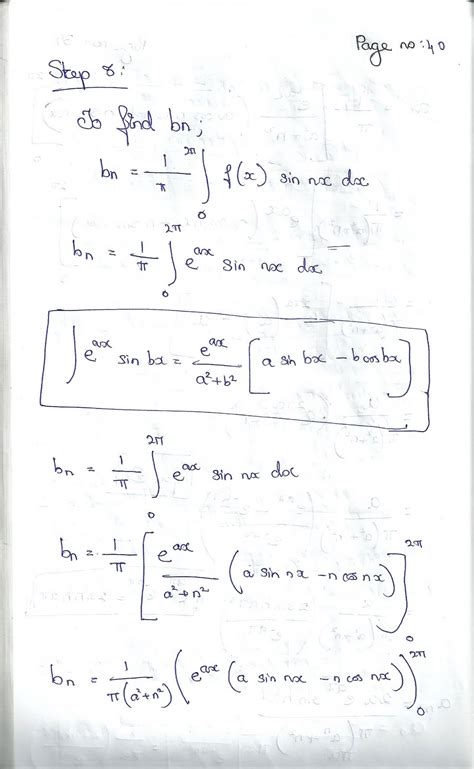 Page no : 40
Step 8:
To find bn,
bn = 1/π ∫₀^2π f(x) sin nx dx
bn = 1/π ∫₀^2π e^ax sin nx dx
∫ e^ax sin bx = e^ax/(a²+b²) [a sin bx - b cos bx]
bn = 1/π ∫₀^2π e^ax sin nx dx
bn = 1/π [e^ax/(a²+n²) (a sin nx - n cos nx)]₀^2π
bn = 1/(π(a²+n²)) (e^ax (a sin nx - n cos nx))₀^2π